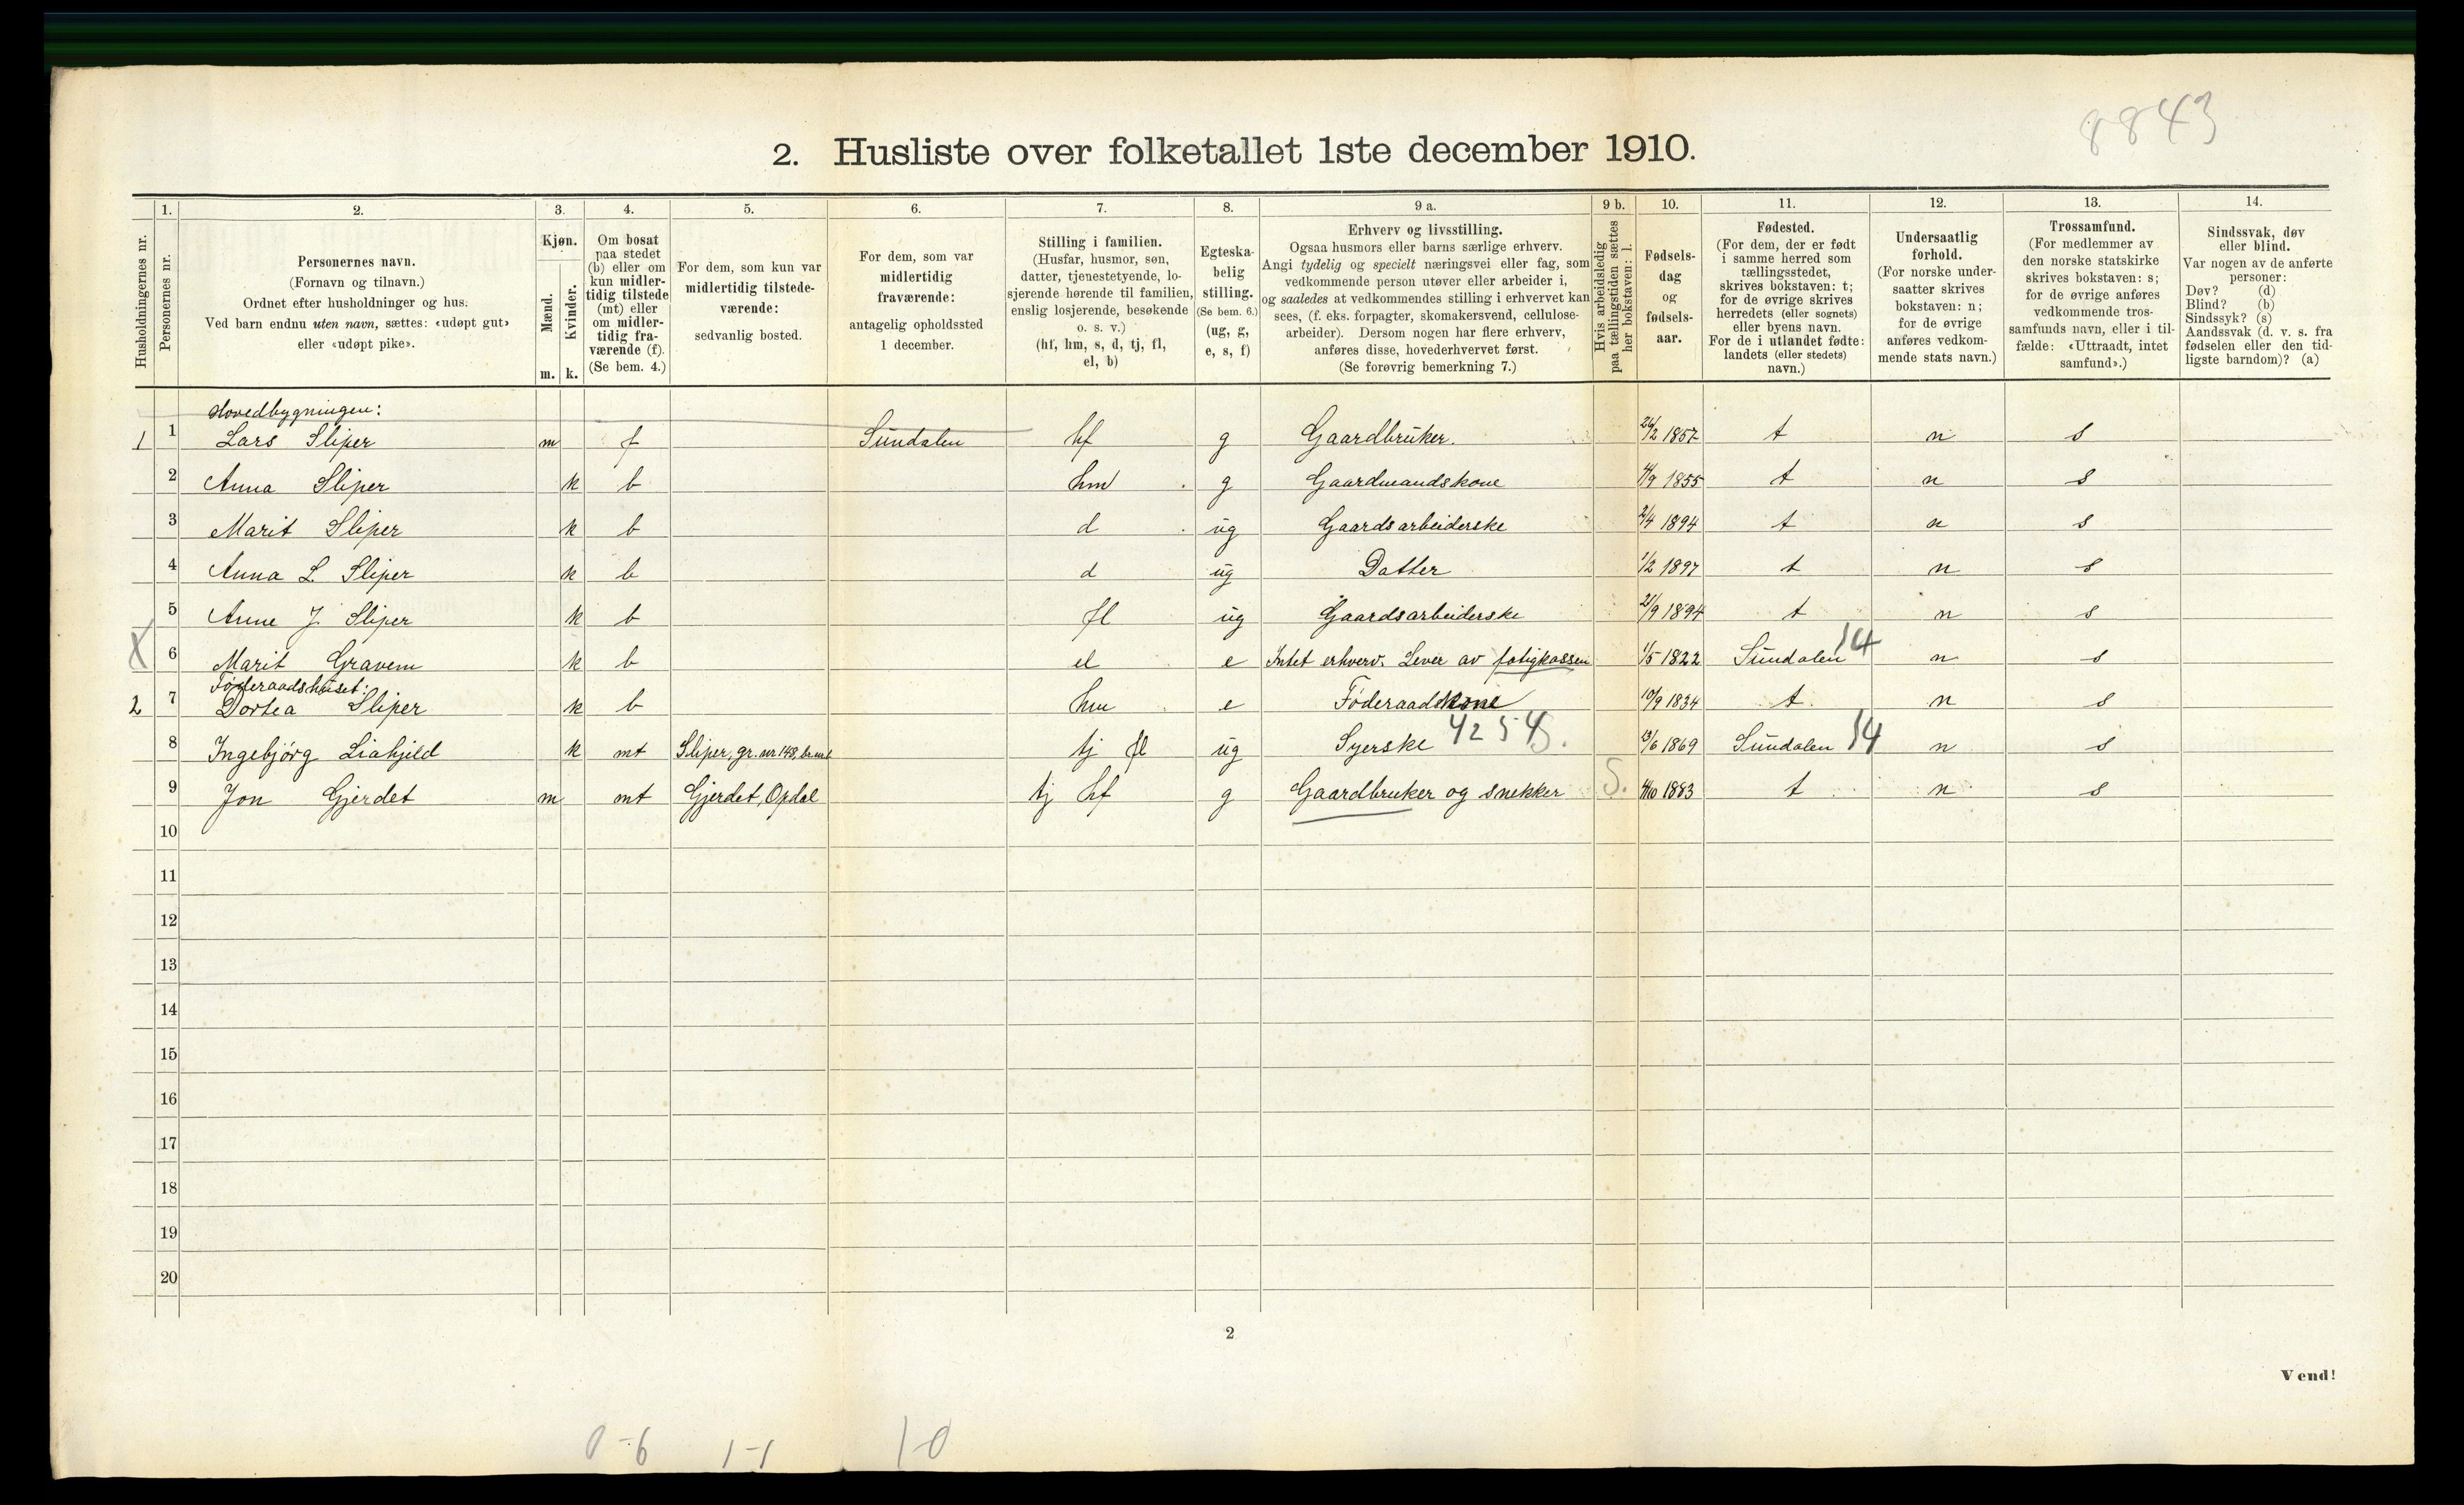 8843
2. Husliste over folketallet 1ste december 1910.
Husholdningernes nr.
1.
Personernes nr.
2.
Personernes navn.
(Fornavn og tilnavn.)
Ordnet efter husholdninger og hus.
Ved barn endnu uten navn, sættes: «udøpt gut»
eller «udøpt pike».
3.
Kjøn.
Mænd.
Kvinder.
m. k.
4.
Om bosat
paa stedet
(b) eller om
kun midler-
tidig tilstede
(mt) eller
om midler-
tidig fra-
værende (f).
(Se bem. 4.)
5.
For dem, som kun var
midlertidig tilstede-
værende:
sedvanlig bosted.
6.
For dem, som var
midlertidig
fraværende:
antagelig opholdssted
1 december.
7.
Stilling i familien.
(Husfar, husmor, søn,
datter, tjenestetyende, lo-
sjerende hørende til familien,
enslig losjerende, besøkende
o. s. v.)
(hf, hm, s, d, tj, fl,
el, b)
8.
Egteska-
belig
stilling.
(Se bem. 6.)
(ug, g,
e, s, f)
9 a.
Erhverv og livsstilling.
Ogsaa husmors eller barns særlige erhverv.
Angi tydelig og specielt næringsvei eller fag, som
vedkommende person utøver eller arbeider i,
og saaledes at vedkommendes stilling i erhvervet kan
sees, (f. eks. forpagter, skomakersvend, cellulose-
arbeider). Dersom nogen har flere erhverv,
anføres disse, hovederhvervet først.
(Se forøvrig bemerkning 7.)
9 b.
Hvis arbeidsledig
paa tællingstiden sættes
her bokstaven: l.
10.
Fødsels-
dag
og
fødsels-
aar.
11.
Fødested.
(For dem, der er født
i samme herred som
tællingsstedet,
skrives bokstaven: t;
for de øvrige skrives
herredets (eller sognets)
eller byens navn.
For de i utlandet fødte:
landets (eller stedets)
navn.)
12.
Undersaatlig
forhold.
(For norske under-
saatter skrives
bokstaven: n;
for de øvrige
anføres vedkom-
mende stats navn.)
13.
Trossamfund.
(For medlemmer av
den norske statskirke
skrives bokstaven: s;
for de øvrige anføres
vedkommende tros-
samfunds navn, eller i til-
fælde: «Uttraadt, intet
samfund».)
14.
Sindssvak, døv
eller blind.
Var nogen av de anførte
personer:
Døv? (d)
Blind? (b)
Sindssyk? (s)
Aandssvak (d. v. s. fra
fødselen eller den tid-
ligste barndom)? (a)
Hovedbygningen:
1 1 Lars Sliper m f Sundalen hf g Gaardbruker. 26/2 1857 t n s
2 Anna Sliper k b hm g Gaardmandskone 4/9 1855 t n s
3 Marit Sliper k b d ug Gaardsarbeiderske 2/4 1894 t n s
4 Anna L. Sliper k b d ug Datter 1/2 1897 t n s
5 Anne J. Sliper k b fl ug Gaardsarbeiderske 21/9 1894 t n s
X 6 Marit Gravem k b el e Intet erhverv. Lever av fatigkassen 1/5 1822 Sundalen 14 n s
Føderaadshuset:
2 7 Dortea Sliper k b hm e Føderaadskone 10/9 1834 t n s
8 Ingebjörg Liahjeld k mt Sliper, gr. nr 148, br. nr 1 tj fl ug Syerske 42548. 13/6 1869 Sundalen 14 n s
9 Jon Gjerdet m mt Gjerdet, Opdal tj hf g Gaardbruker og snekker S. 4/10 1883 t n s
10
11
12
13
14
15
16
17
18
19
20
2
Vend!
0-6 1-1 1-0